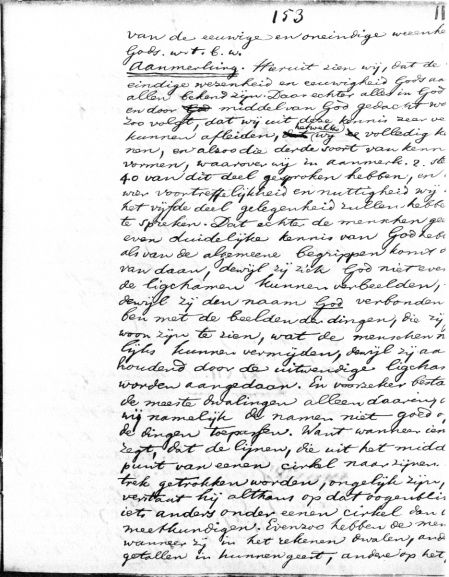 153
van de eeuwige en oneindige weenhe
Gods. w.t.b.w.
Aanmerking. Hieruit zien wij, dat de
eindige wezenheid en eeuwigheid Gods aa
allen bekend zijn. Daar echter alles in God
en door God middel van God gedacht wo
zoo volgt, dat wij uit deze kennis zeer ve
kunnen afleiden, hetwelk wij volledig k
nen, en alsoo die derde soort van kenn
vormen, waarover wij in aanmerk. 2. st
40 van dit deel gesproken hebben, en
wier voortreffelijkheid en nuttigheid wij
het vijfde deel gelegenheid zullen hebbe
te spreken. Dat echte de menschen gee
even duidelijke kennis van God hebb
als van de algemeene begrippen komt d
van daan, dewijl zij zich God niet even
de ligchamen kunnen verbeelden,
dewijl zij den naam God verbonden
ben met de beelden der dingen, die zij
woon zijn te zien, wat de menschen n
lijks kunnen vermijden, dewijl zij aa
houdend door de uitwendige ligcha
worden aangedaan. En voorzeker besta
de meeste dwalingen alleen daarin,
wij namelijk de namen niet goed o
de dingen toepassen. Want wanneer iem
zegt, dat de lijnen, die uit het midd
punt van eenen cirkel naar zijnen
trek getrokken worden, ongelijk zijn,
verstaat hij althans op dat oogenblik
iets anders onder eenen cirkel dan d
meetkundigen. Evenzoo hebben de men
wanneer zij in het rekenen dwalen, and
getallen in hunnen geest, andere op het